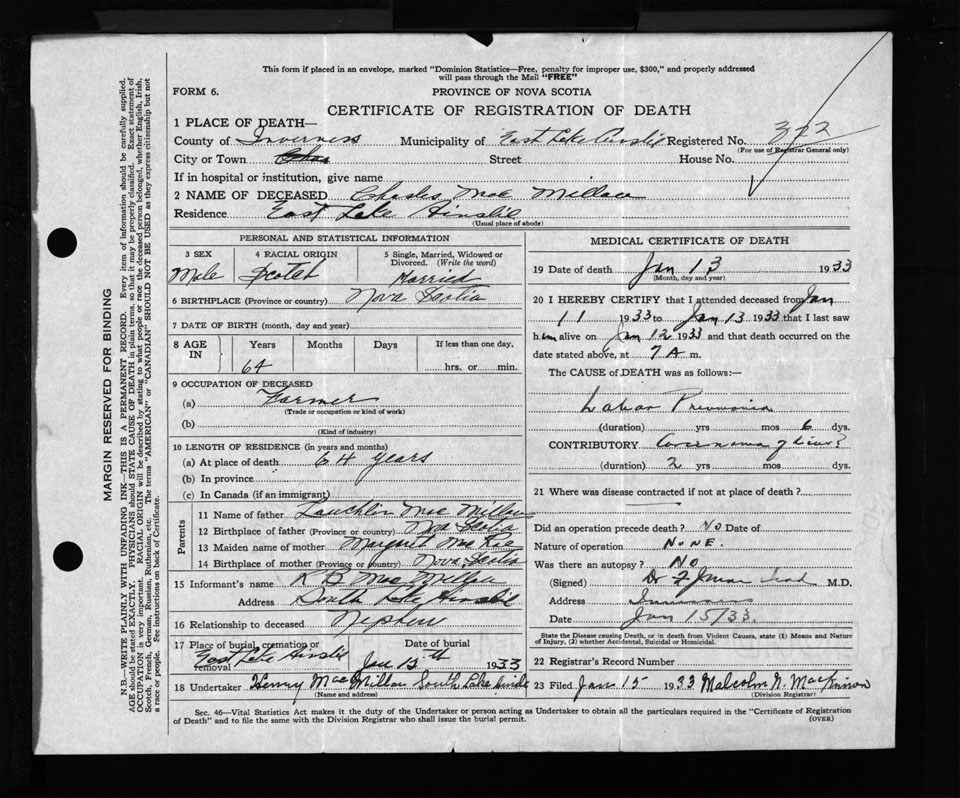 This form if placed in an envelope, marked "Dominion Statistics—Free, penalty for improper use, $300," and properly addressed
will pass through the Mail "FREE"
FORM 6.
PROVINCE OF NOVA SCOTIA
CERTIFICATE OF REGISTRATION OF DEATH
1 PLACE OF DEATH—
County of Inverness Municipality of East Lake Ainslie Registered No. 372
(For use of Registrar General only)
City or Town Street House No.
If in hospital or institution, give name
2 NAME OF DECEASED Charles Mac Millan
Residence East Lake Ainslie
(Usual place of abode)
PERSONAL AND STATISTICAL INFORMATION
3 SEX
Male
4 RACIAL ORIGIN
Scotch
5 Single, Married, Widowed or
Divorced. (Write the word)
Married
6 BIRTHPLACE (Province or country) Nova Scotia
7 DATE OF BIRTH (month, day and year)
8 AGE IN
Years Months Days If less than one day,
64 hrs. or min.
9 OCCUPATION OF DECEASED
(a) Farmer
(Trade or occupation or kind of work)
(b)
(Kind of industry)
10 LENGTH OF RESIDENCE (in years and months)
(a) At place of death 64 years
(b) In province
(c) In Canada (if an immigrant)
Parents
11 Name of father Lauchlin Mac Millan
12 Birthplace of father (Province or country) Nova Scotia
13 Maiden name of mother Margret McRae
14 Birthplace of mother (Province or country) Nova Scotia
15 Informant's name R B MacMillan
Address South Lake Ainslie
16 Relationship to deceased Nephew
17 Place of burial, cremation or removal East Lake Ainslie
Date of burial Jan 15th 1933
18 Undertaker Henry MacMillan South Lake Ainslie
(Name and address)
MEDICAL CERTIFICATE OF DEATH
19 Date of death Jan 13 1933
(Month, day and year)
20 I HEREBY CERTIFY that I attended deceased from Jan
11 1933 to Jan 13 1933 that I last saw
him alive on Jan 12 1933 and that death occurred on the
date stated above, at 7 A m.
The CAUSE of DEATH was as follows:—
Lobar Pneumonia
(duration) yrs mos 6 dys.
CONTRIBUTORY Carcinoma of liver?
(duration) 2 yrs mos dys.
21 Where was disease contracted if not at place of death?
Did an operation precede death? No Date of
Nature of operation None.
Was there an autopsy? No
(Signed) Dr M.D.
Address Inverness
Date Jan 15/33.
State the Disease causing Death, or in death from Violent Causes, state (1) Means and Nature
of Injury, (2) whether Accidental, Suicidal or Homicidal.
22 Registrar's Record Number
23 Filed Jan 15 1933 Malcolm N. MacKinnon
(Division Registrar)
Sec. 46—Vital Statistics Act makes it the duty of the Undertaker or person acting as Undertaker to obtain all the particulars required in the "Certificate of Registration
of Death" and to file the same with the Division Registrar who shall issue the burial permit.
(OVER)
MARGIN RESERVED FOR BINDING
N.B.—WRITE PLAINLY WITH UNFADING INK—THIS IS A PERMANENT RECORD. Every item of information should be carefully supplied.
AGE should be stated EXACTLY. PHYSICIANS should STATE CAUSE OF DEATH in plain terms, so that it may be properly classified. Exact statement of
OCCUPATION is very important. RACIAL ORIGIN will be described by stating to what people or race the deceased person belonged, whether English, Irish,
Scotch, French, German, Russian, Ruthenian, etc. The terms "AMERICAN" or "CANADIAN" SHOULD NOT BE USED as they express citizenship but not
a race or people. See instructions on back of Certificate.